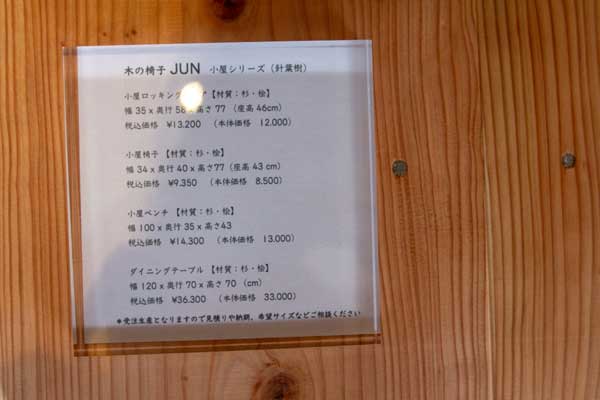 木の椅子 JUN 小屋シリーズ（針葉樹）
小屋ロッキング 【材質：杉・桧】
幅 35 x 奥行 58 x 高さ 77 （座高 46cm）
税込価格 ¥13,200 （本体価格 12,000）
小屋椅子 【材質：杉・桧】
幅 34 x 奥行 40 x 高さ77（座高 43 cm）
税込価格 ¥9,350 （本体価格 8,500）
小屋ベンチ 【材質：杉・桧】
幅 100 x 奥行 35 x 高さ43
税込価格 ¥14,300 （本体価格 13,000）
ダイニングテーブル 【材質：杉・桧】
幅 120 x 奥行 70 x 高さ 70 （cm）
税込価格 ¥36,300 （本体価格 33,000）
＊受注生産となりますので見積りや納期、希望サイズなどご相談ください